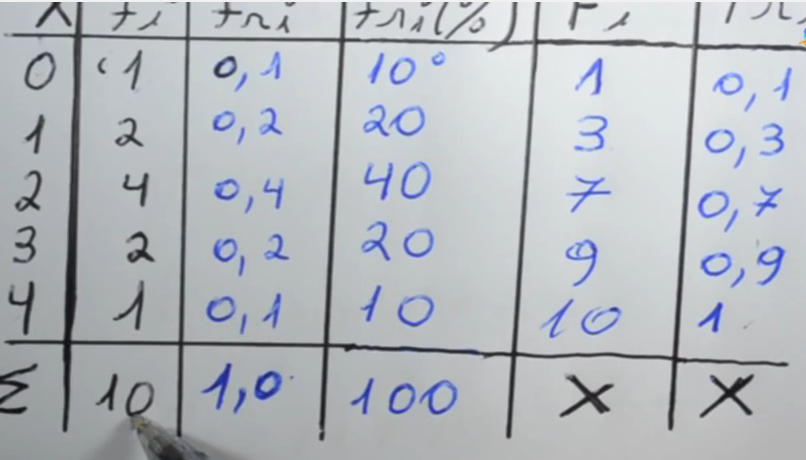 X fi fri fri(%) Fi Fri
0 1 0,1 10 1 0,1
1 2 0,2 20 3 0,3
2 4 0,4 40 7 0,7
3 2 0,2 20 9 0,9
4 1 0,1 10 10 1
Σ 10 1,0 100 X X